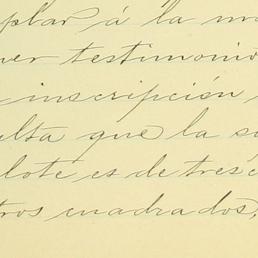 plar á la m
ner testimonio
inscripción
ulta que la s
lote es de tres c
tros cuadrados,